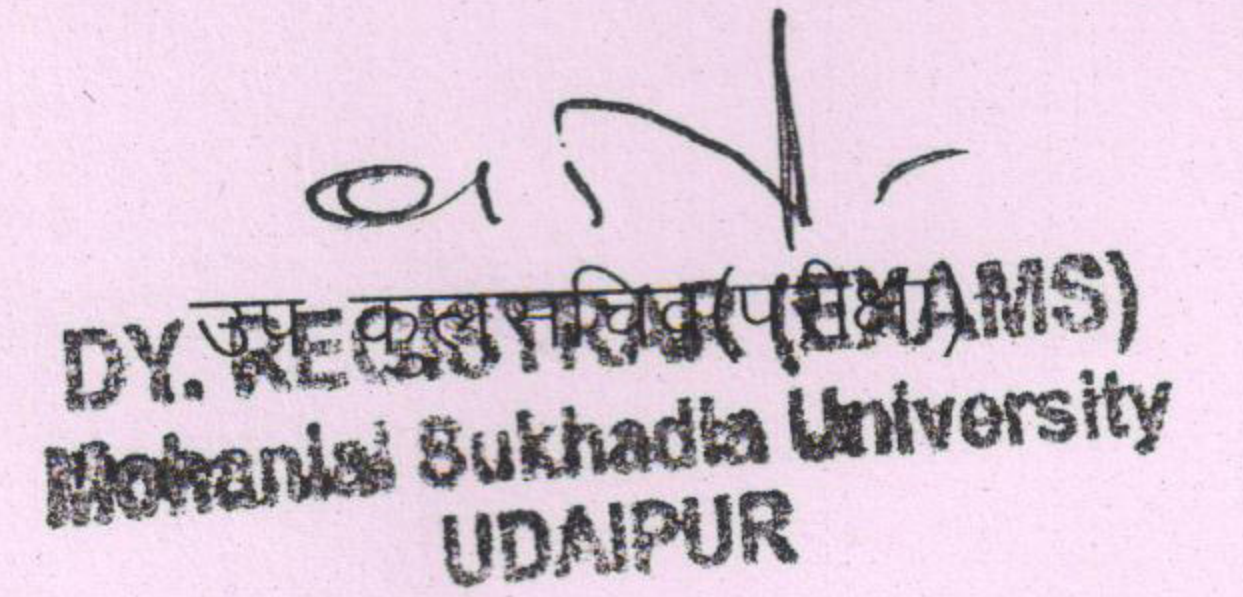 उप कुल सचिव (परीक्षा)
DY. REGISTRAR (EXAMS)
Mohanlal Sukhadia University
UDAIPUR